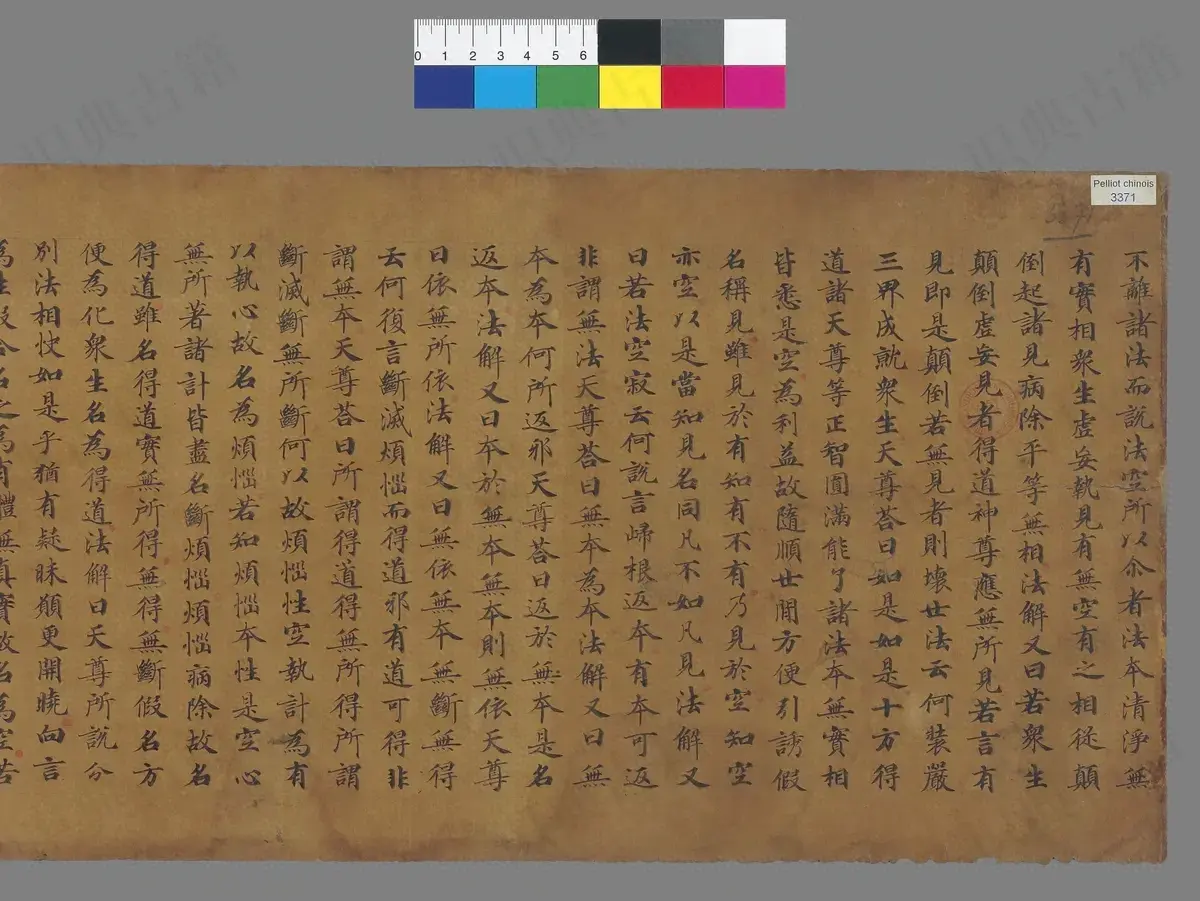 Pelliot chinois
3371
0 1 2 3 4 5 6
不離諸法而說法空所以尒者法本清淨無
有實相衆生虛妄執見有無空有之相從顛
倒起諸見病除平等無相法解又曰若衆生
顛倒虛妄見者得道神尊應無所見若言有
見即是顛倒若無見者則壞世法云何裝嚴
三界成就衆生天尊荅曰如是如是十方得
道諸天尊等正智圓滿能了諸法本無實相
皆悉是空為利益故隨順世間方便引誘假
名稱見雖見於有知有不有乃見於空知空
亦空以是當知見名同凡不如凡見法解又
曰若法空寂云何說言歸根返本有本可返
非謂無法天尊荅曰無本為本法解又曰無
本為本何所返邪天尊荅曰返於無本是名
返本法解又曰本於無本無本則無依天尊
曰依無所依法解又曰無依無本無斷無得
云何復言斷滅煩惱而得道邪有道可得非
謂無本天尊荅曰所謂得道得無所得所謂
斷滅斷無所斷何以故煩惱性空執計為有
以執心故名為煩惱若知煩惱本性是空心
無所著諸計皆盡名斷煩惱煩惱病除故名
得道雖名得道實無所得無得無斷假名方
便為化衆生名為得道法解曰天尊所說分
別法相快如是乎猶有疑昧願更開曉向言
識典古籍